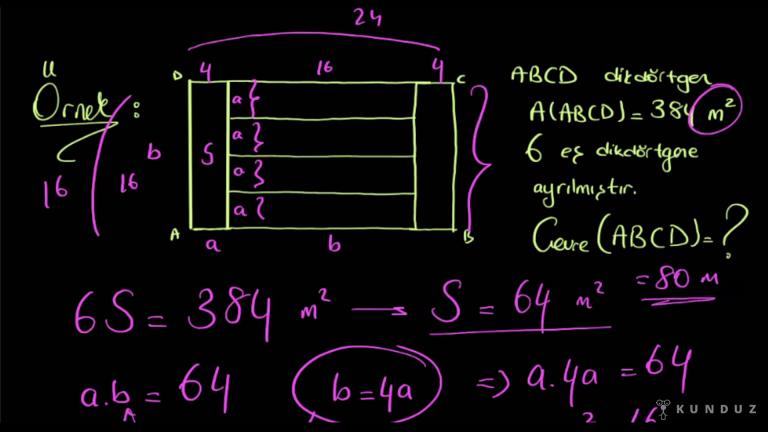 24
D 4 16 4 C
Örnek :
16 16 b
S
a
a
a
a
A a b B
ABCD dikdörtgen
A(ABCD) = 384 m²
6 eş dikdörtgene
ayrılmıştır.
Çevre (ABCD) = ?
= 80 m
6S = 384 m² → S = 64 m²
a.b = 64 b = 4a => a.4a = 64
2 16
KUNDUZ